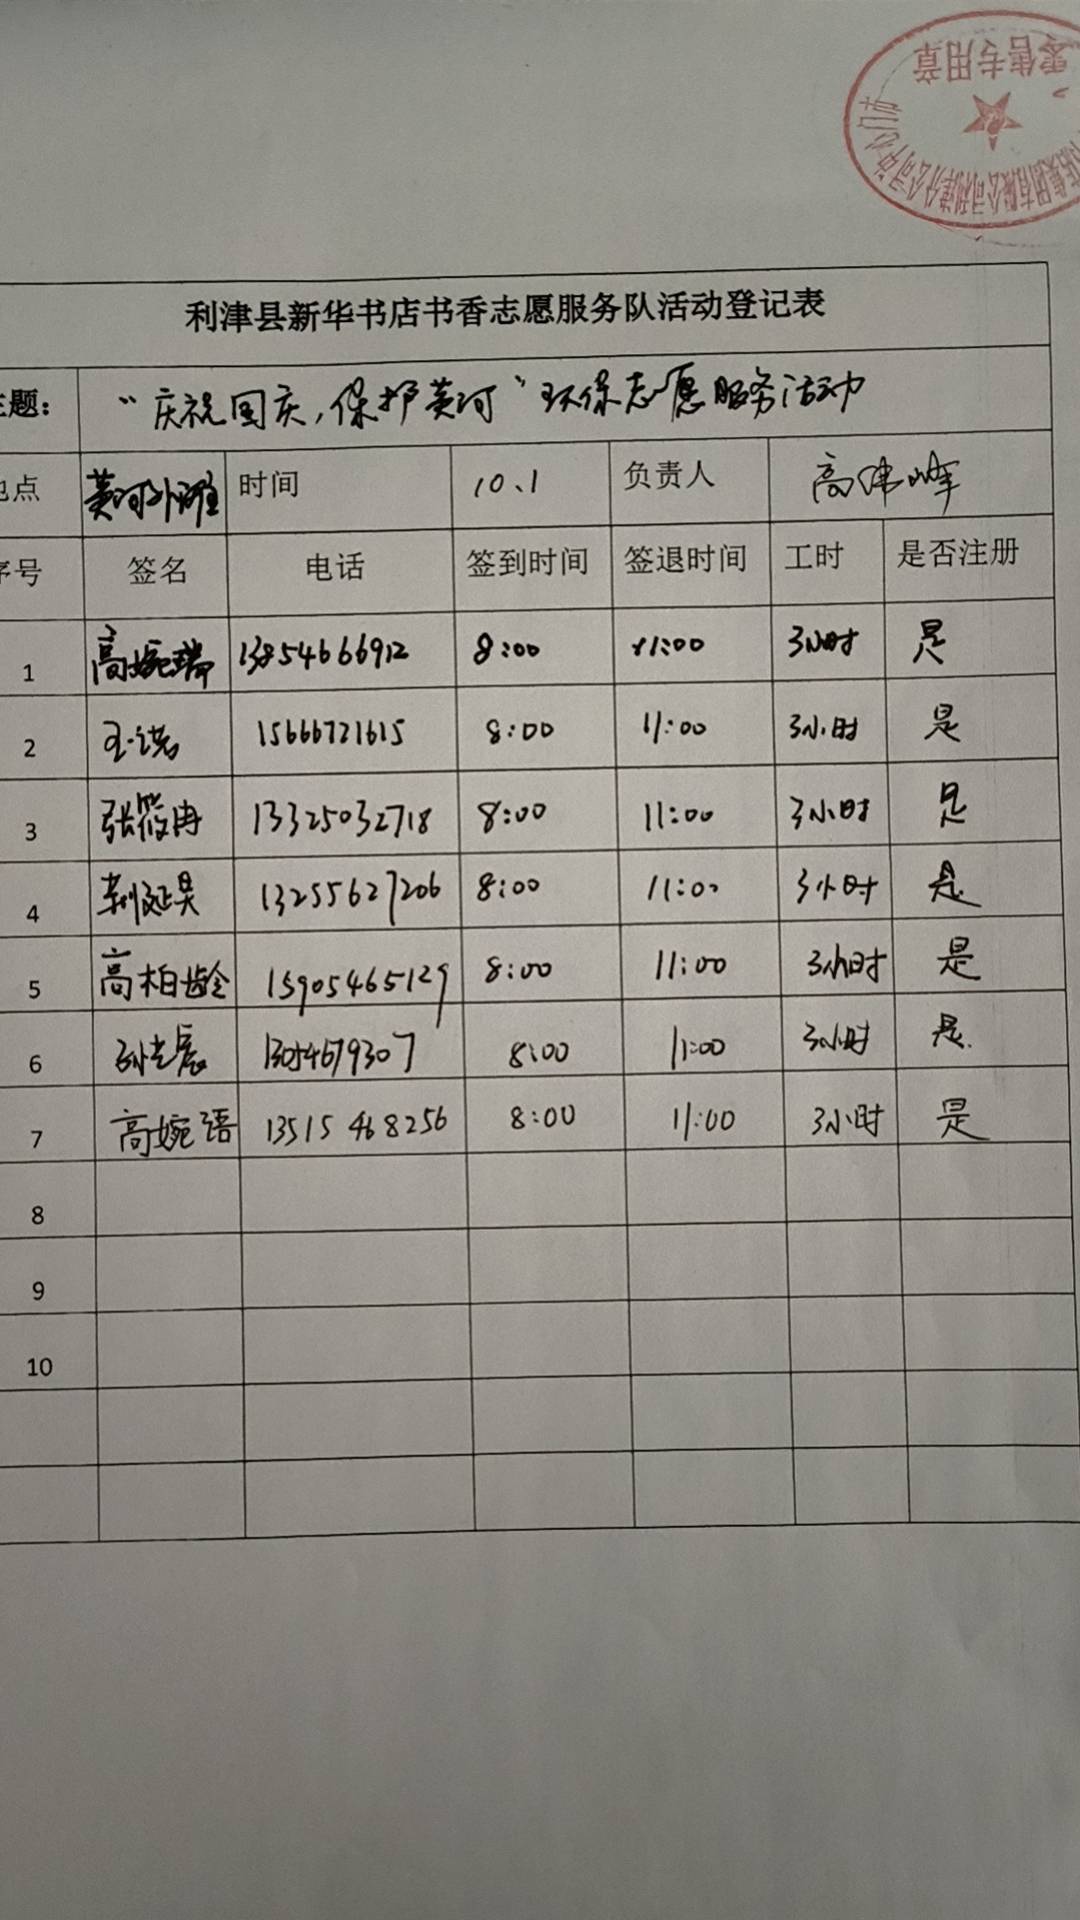 零售专用章
店集团有限公司利津分公司中心门市
利津县新华书店书香志愿服务队活动登记表
主题： “庆祝国庆，保护黄河”环保志愿服务活动
地点 黄河外滩 时间 10、1 负责人 高伟峰
序号 签名 电话 签到时间 签退时间 工时 是否注册
1 高婉瑞 13854666912 8:00 11:00 3小时 是
2 王诺 15666721615 8:00 11:00 3小时 是
3 张筱冉 13325032718 8:00 11:00 3小时 是
4 荆延昊 13255627206 8:00 11:00 3小时 是
5 高柏龄 15905465129 8:00 11:00 3小时 是
6 8:00 11:00 3小时 是.
7 高婉语 13515468256 8:00 11:00 3小时 是
8
9
10